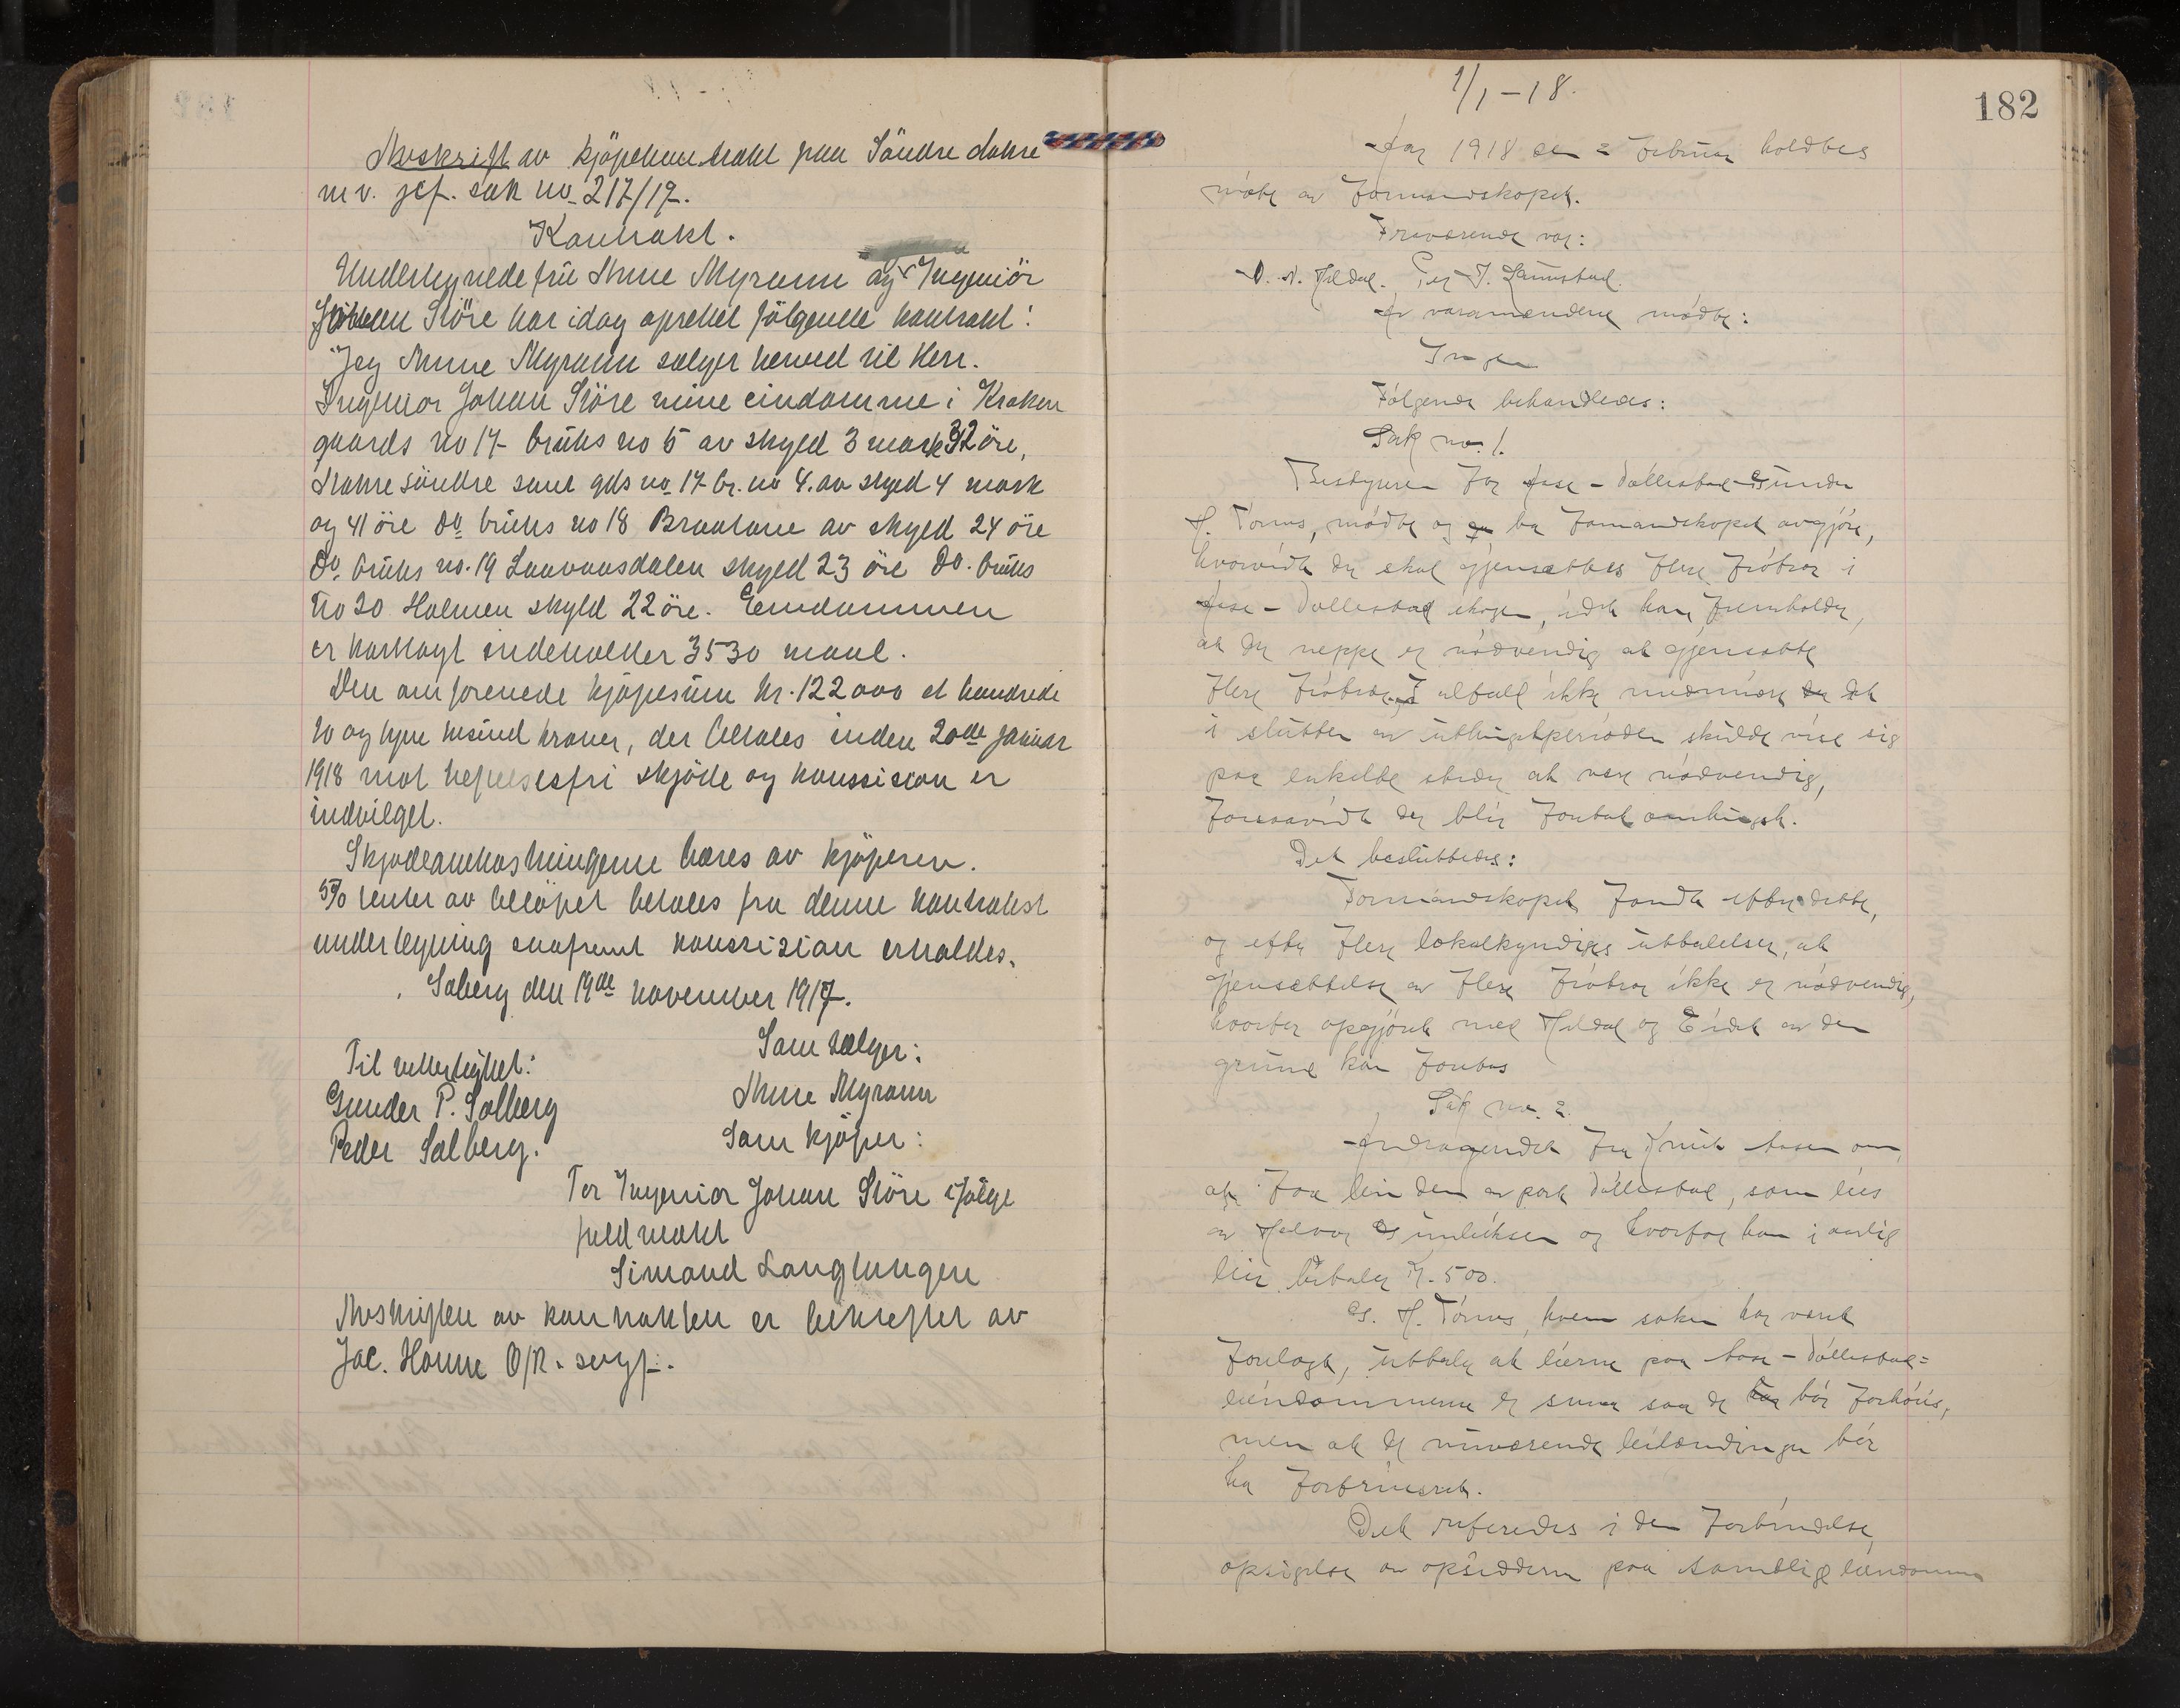 Avskrift av kjöpekontrakt paa Söndre Aakre
m v. jcf. sak no 217/17.
Kontrakt.
Undertegnede frü Anne Myrann og Ingeniör
Johan Störe har idag oprettet fölgende kontrakt:
Jeg Anne Myrann sælger herved til Herr.
Ingeniör Johan Störe mine eindomme i Kroken
gaards no 17 brüks no 5 av skyld 3 mark 32 öre,
Aakre söndre samt gds no 17 br. no 4. av skyld 4 mark
og 41 öre Do brüks no 18 Braatane av skyld 24 öre
Do. brüks no. 19 skyld 23 öre Do. brüks
no 20 Holmen skyld 22 öre. Eiendommen
er kartlagt indeholder 3530 maal.
Den omforenede kjöpesüm kr. 122000 et hundrede
to og tyve tüsind kroner, der betales inden 20de janüar
1918 mot heftelsesfri skjöte og konssision er
indvilget.
Skjödeomkostningerne bæres av kjöperen.
5% renter av belöpet betales fra denne kontrakst
undertegning snafremt konssision erholdes.
Solberg den 19de november 1917.
Som sælger:
Til vitterlighet:
Anne Myrann
Gunder P. Solberg
Som kjöper:
Peder Solberg.
For Ingeniör Johan Störe ifölge
fuldmakt
Simond Langlungen
Avskriften av kontrakten er bekreftet av
Jac. Honne O/R. sagf.
182
2/1 – 18.
Aar 1918 den 2 holdtes
möte av Formandskapet.
Fraværende var:
O. N. Heldal. Per J. Lannestad.
Av varamændene mödte:
Ingen
Fölgende behandledes:
Sak no. 1.
Bestyreren for Aase – Döllestad Gunder
H. Tornes, mödte og ba Formandskapet avgjöre,
hvorvidt der skal gjensættes flere frötrær i
Aase – Döllestad skogen, idet han fremholder,
at der neppe er nödvendig at gjensætte
flere frötrær. I alfald ikke medmindre det
i slutten av uthugstperioden skülde vise sig
paa enkelte steder at være nödvendig,
forsaavidt der blir foretat omhugst.
Det besluttedes:
Formandskapet fandt efter dette,
og efter flere lokalkyndiges üttalelser, at
gjensættelse av flere frötrær ikke er nödvendig,
hvorfor opgjöret med Heldal og Eidet av den
grund kan foretas
Sak no. 2.
Andragendet fra Knut Aasen om,
at faa leie den av part Döllestad, som leies
av Halvor Gunleiksen og hvorfor han i aarlig
leie betaler Kr. 500.
G. H. Tornes, hvem saken har været
forelagt, üttaler at leierne paa Aase – Döllestad=
eiendommene er smaa saa de bör forhöies,
men at de nuværende leilændinger bör
ha fortrinsret.
Det refereredes i den forbindelse
opsigelse av opsidderne paa samtlige eiendomme